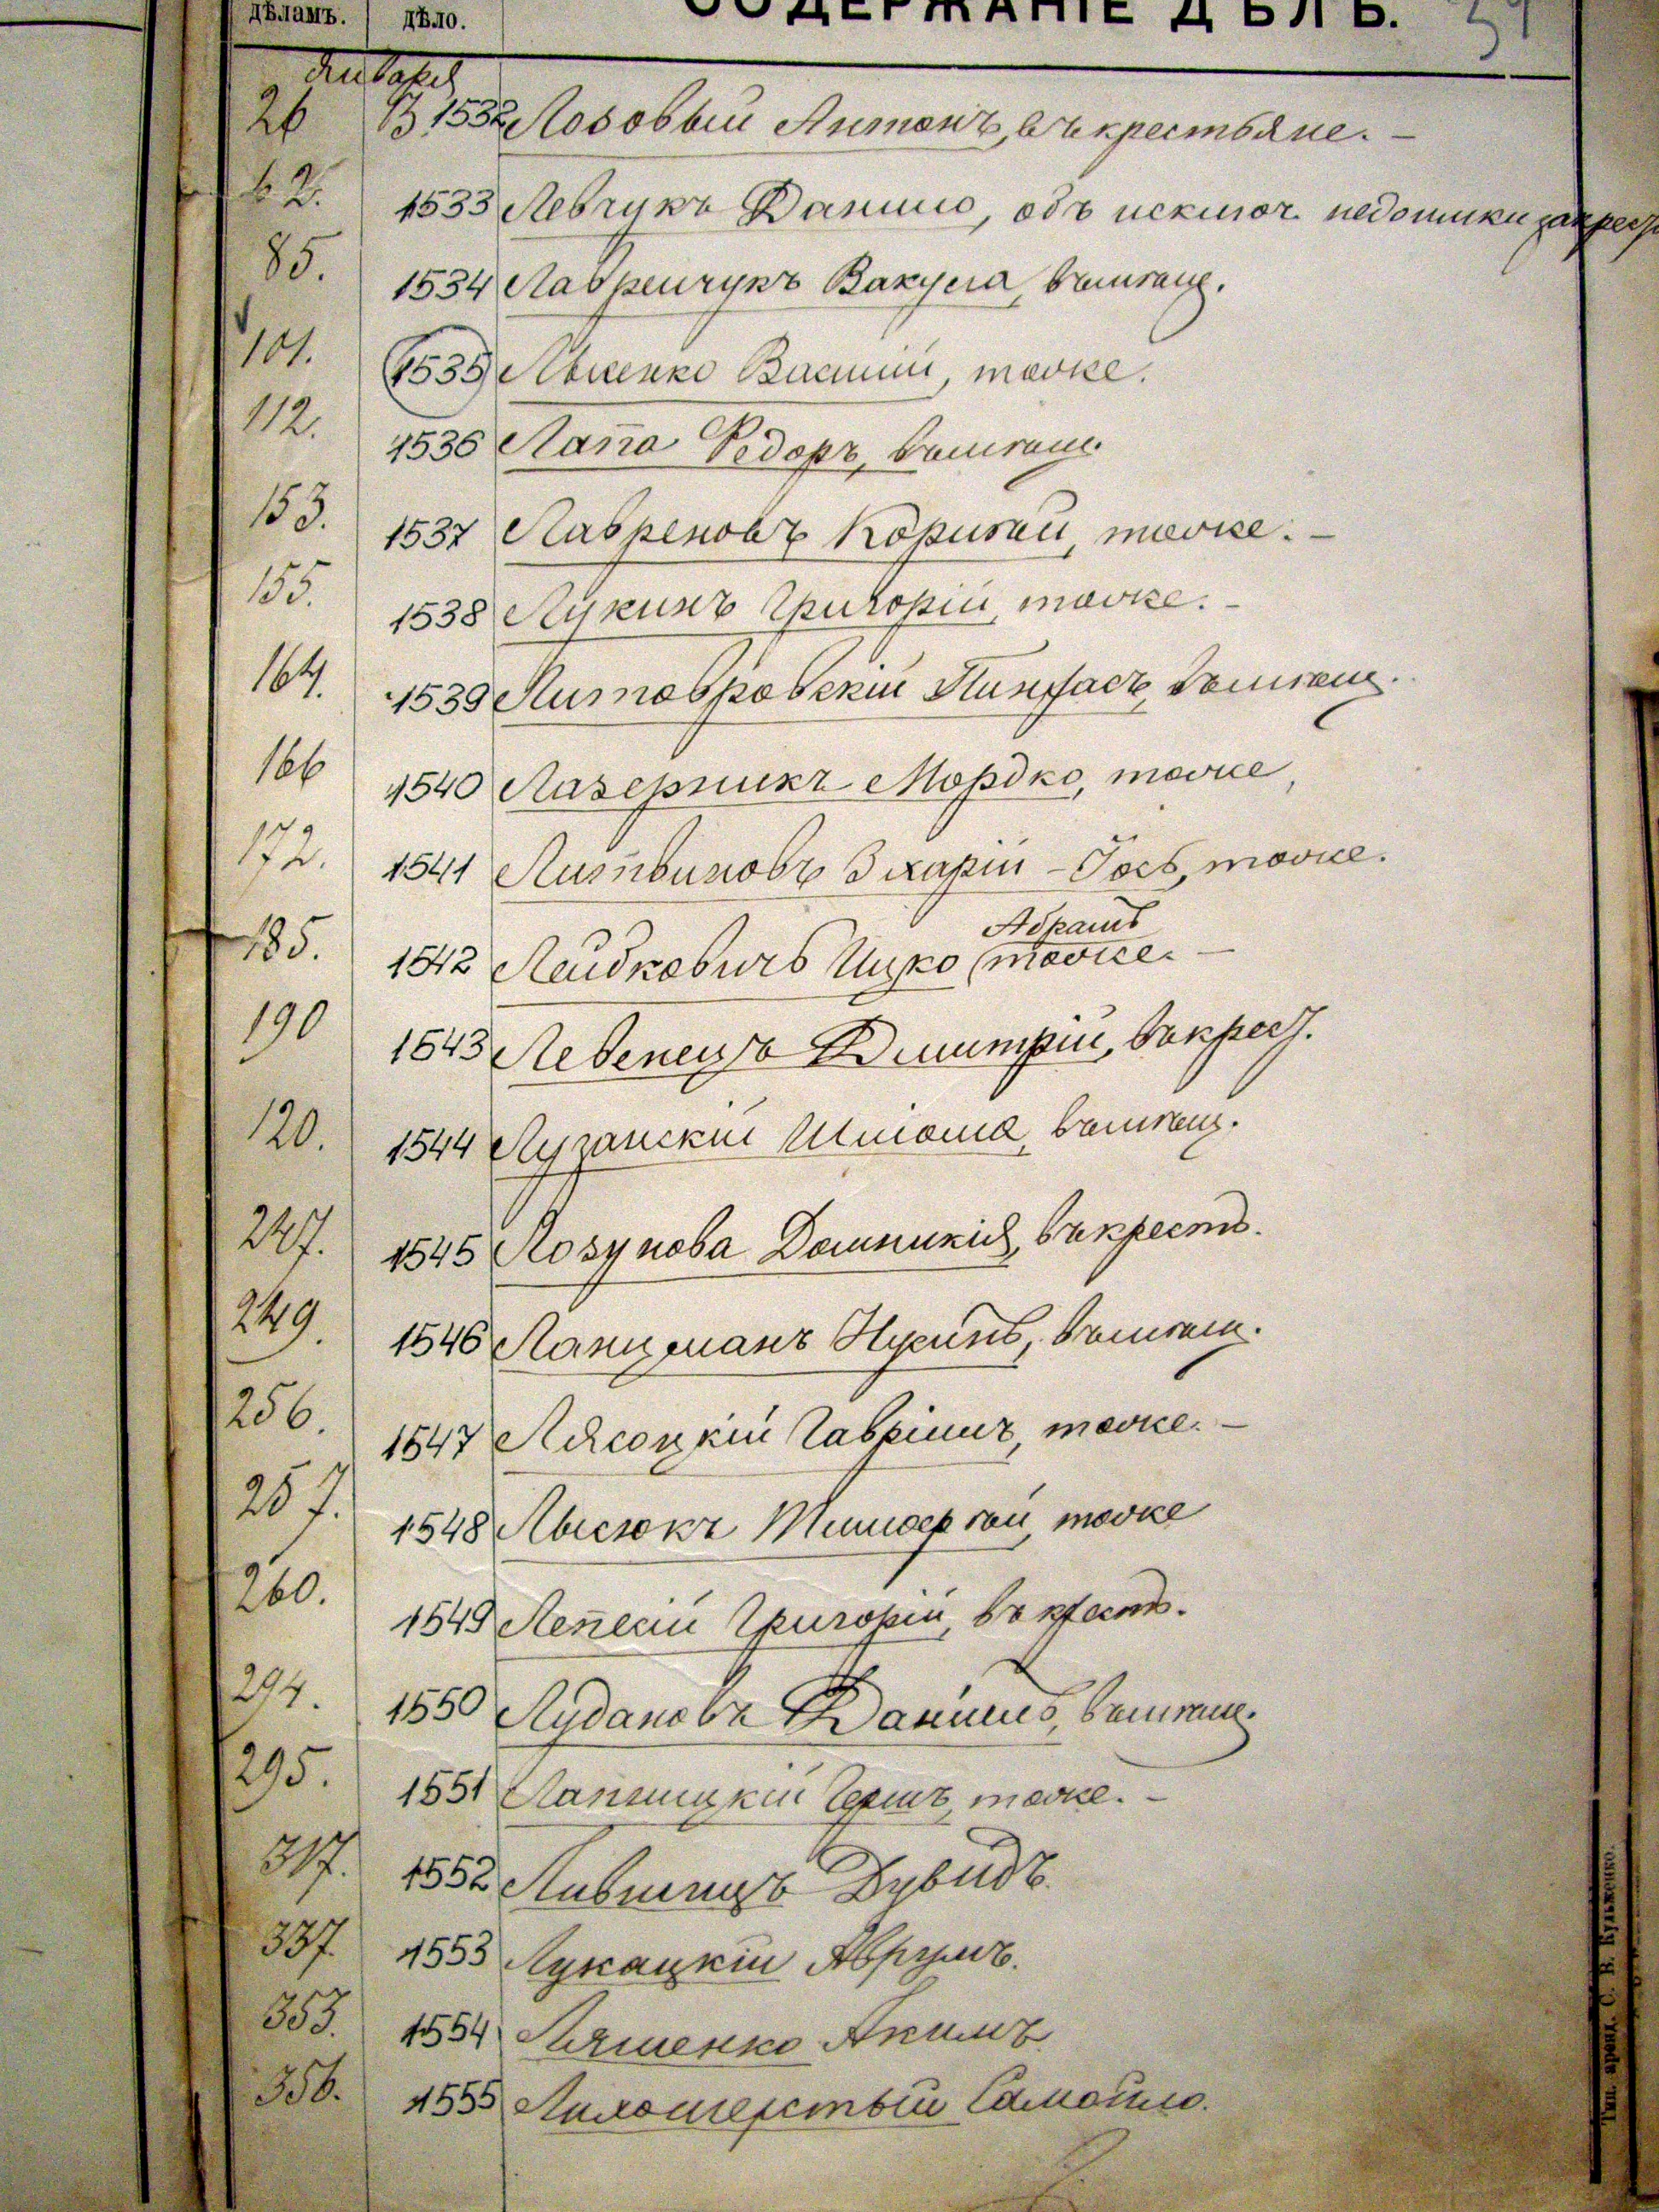 дѣламъ. дѣло. СОДЕРЖАНІЕ ДѢЛЪ. 39
Января
26 В. 1532 Лозовый Антонъ, въ крестьяне. —
62. 1533 Левчукъ Данило, объ исключ. недоимки за крест
85. 1534 Лавренчукъ Вакула, въ мѣщ.
101. 1535 Лысенко Василій, тоже.
112. 1536 Лапа Федоръ, въ мѣщ.
153. 1537 Лавреновъ Корнѣй, тоже. —
155. 1538 Лукинъ Григорій, тоже. —
164. 1539 Пинхасъ, въ мѣщ.
166 1540 Лазерникъ Мордко, тоже,
172. 1541 Литвиновъ Захарій - Іось, тоже.
Абрамъ
185. 1542 Лейбковичъ Ицко тоже. —
190 1543 Левенецъ Дмитрій, въ крест.
120. 1544 Лузанскій Шлома, въ мѣщ.
247. 1545 Лозунова Домникія, въ крест.
249. 1546 Ланцманъ Нухимъ, въ мѣщ.
256. 1547 Лясоцкій Гавріилъ, тоже. —
257. 1548 Лысюкъ тоже
260. 1549 Григорій, въ крест.
294. 1550 Лудановъ Даніилъ, въ мѣщ.
295. 1551 Лапницкій Гершъ, тоже. —
317. 1552 Лившицъ Дувидъ.
337. 1553 Лукацкій Аврумъ.
353. 1554 Ляшенко Акимъ.
356. 1555 Лихошерстый Самойло.
Тип. аренд. С. В. Кульженко.